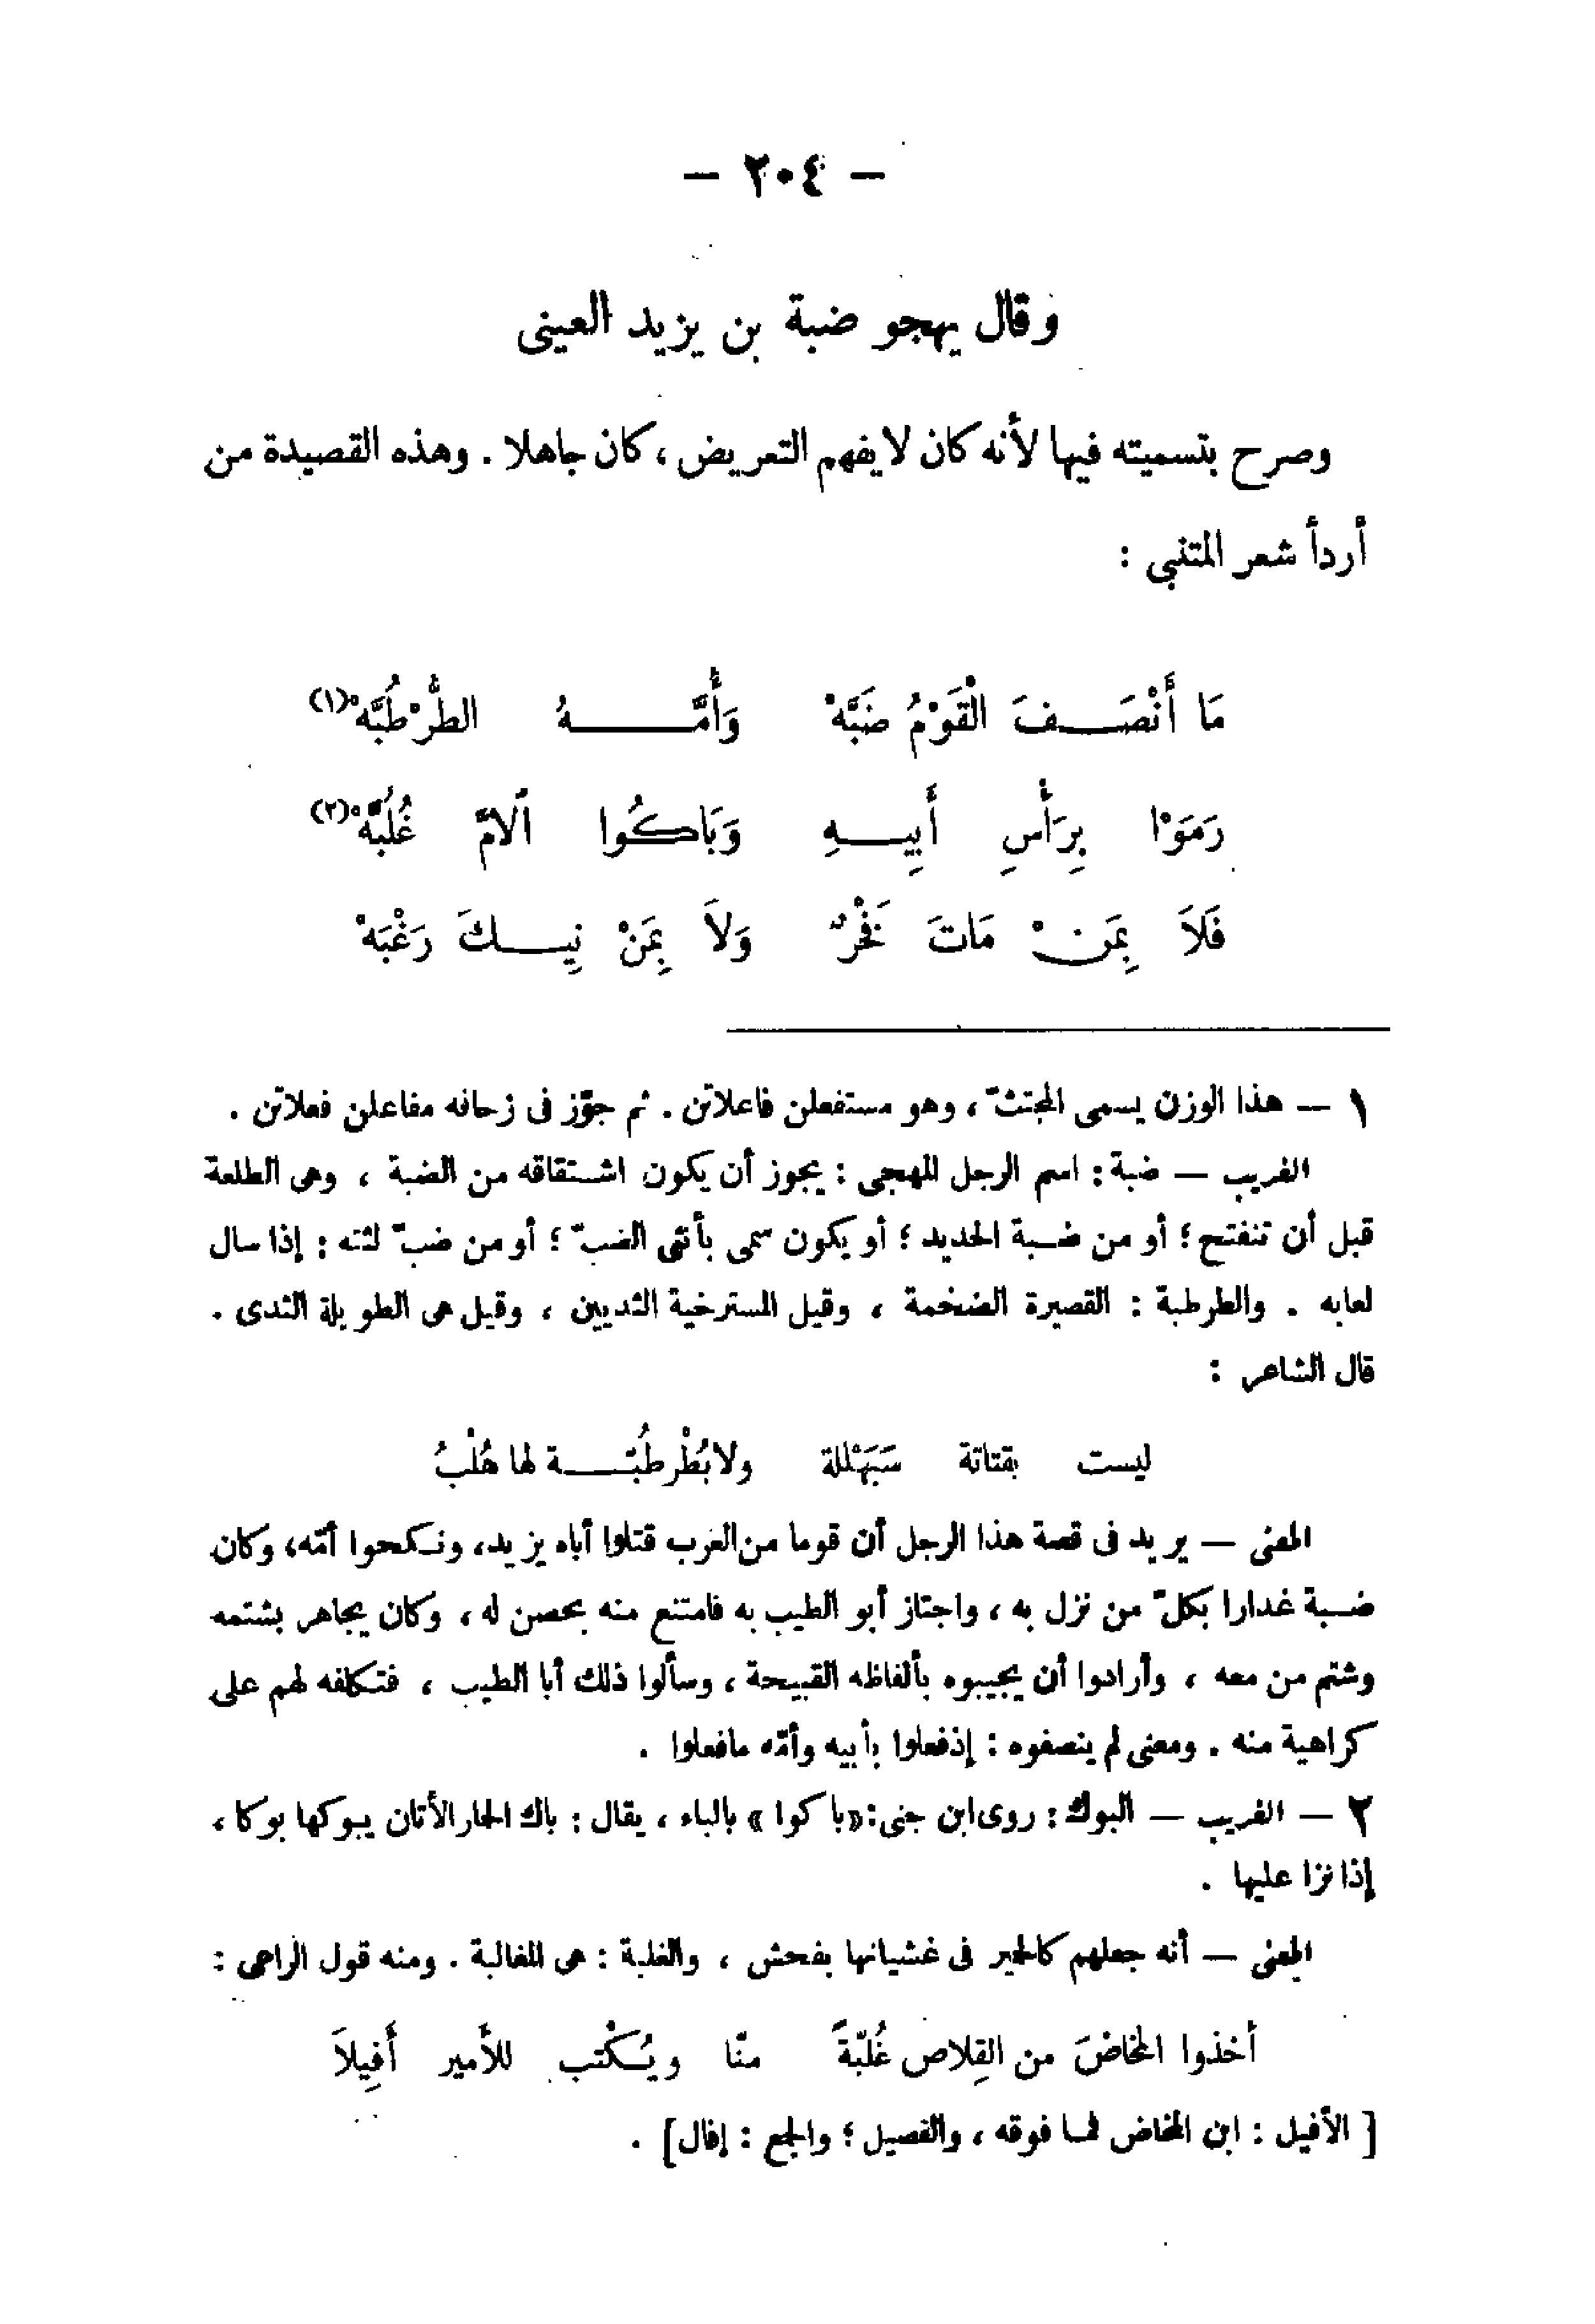 — ٢٠٤ —
وقال يهجو ضبة بن يزيد العينى
وصرح بتسميته فيها لأنه كان لا يفهم التعريض ، كان جاهلا . وهذه القصيدة من
أردأ شعر المتنبى :
مَا أَنْصَـــفَ الْقَوْمُ ضَبَّهْ وَأُمَّـــــهُ الطُّرْطُبَّهْ (١)
رَمَوْا بِرَأْسِ أَبِيـــهِ وَبَاكُوا ٱلامَّ غُلُبَّهْ (٢)
فَلاَ بِمَنْ مَاتَ فَخْرٌ وَلاَ بِمَنْ نِيـــكَ رَغْبَهْ
١ — هذا الوزن يسمى المجتثّ ، وهو مستفعلن فاعلاتن . ثم جوّز فى زحافه مفاعلن فعلاتن .
الغريب — ضبة : اسم الرجل المهجى : يجوز أن يكون اشـتقاقه من الضبة ، وهى الطلعة
قبل أن تنفتح ؛ أو من ضـبة الحديد ؛ أو يكون سمى بأنثى الضبّ ؛ أو من ضبّ لثته : إذا سال
لعابه . والطرطبة : القصيرة الضخمة ، وقيل المسترخية الثديين ، وقيل هى الطويلة الثدى .
قال الشاعر :
ليست بقتاتة سَبَهْللة ولا بُطْرطُبّـــة لها هُلْبُ
المعنى — يريد فى قصة هذا الرجل أن قوما من العرب قتلوا أباه يزيد، ونـكحوا أمّه، وكان
ضـبة غدارا بكلّ من نزل به ، واجتاز أبو الطيب به فامتنع منه بحصن له ، وكان يجاهر بشتمه
وشتم من معه ، وأرادوا أن يجيبوه بألفاظه القبيحة ، وسألوا ذلك أبا الطيب ، فتكلفه لهم على
كراهية منه . ومعنى لم ينصفوه : إذ فعلوا بأبيه وأمّه مافعلوا .
٢ — الغريب — البوك : روى ابن جنى : «باكوا» بالباء ، يقال : باك الحمار الأتان يبوكها بوكا ،
إذا نزا عليها .
المعنى — أنه جعلهم كالحمير فى غشيانها بفحش ، والغلبة : هى المغالبة . ومنه قول الراعى :
أخذوا المخاضَ من القِلاص غُلبّةً منّا ويُـكْتب للأمير أَفِيلاَ
[ الأفيل : ابن المخاض فما فوقه ، والفصيل ؛ والجمع : إفال] .